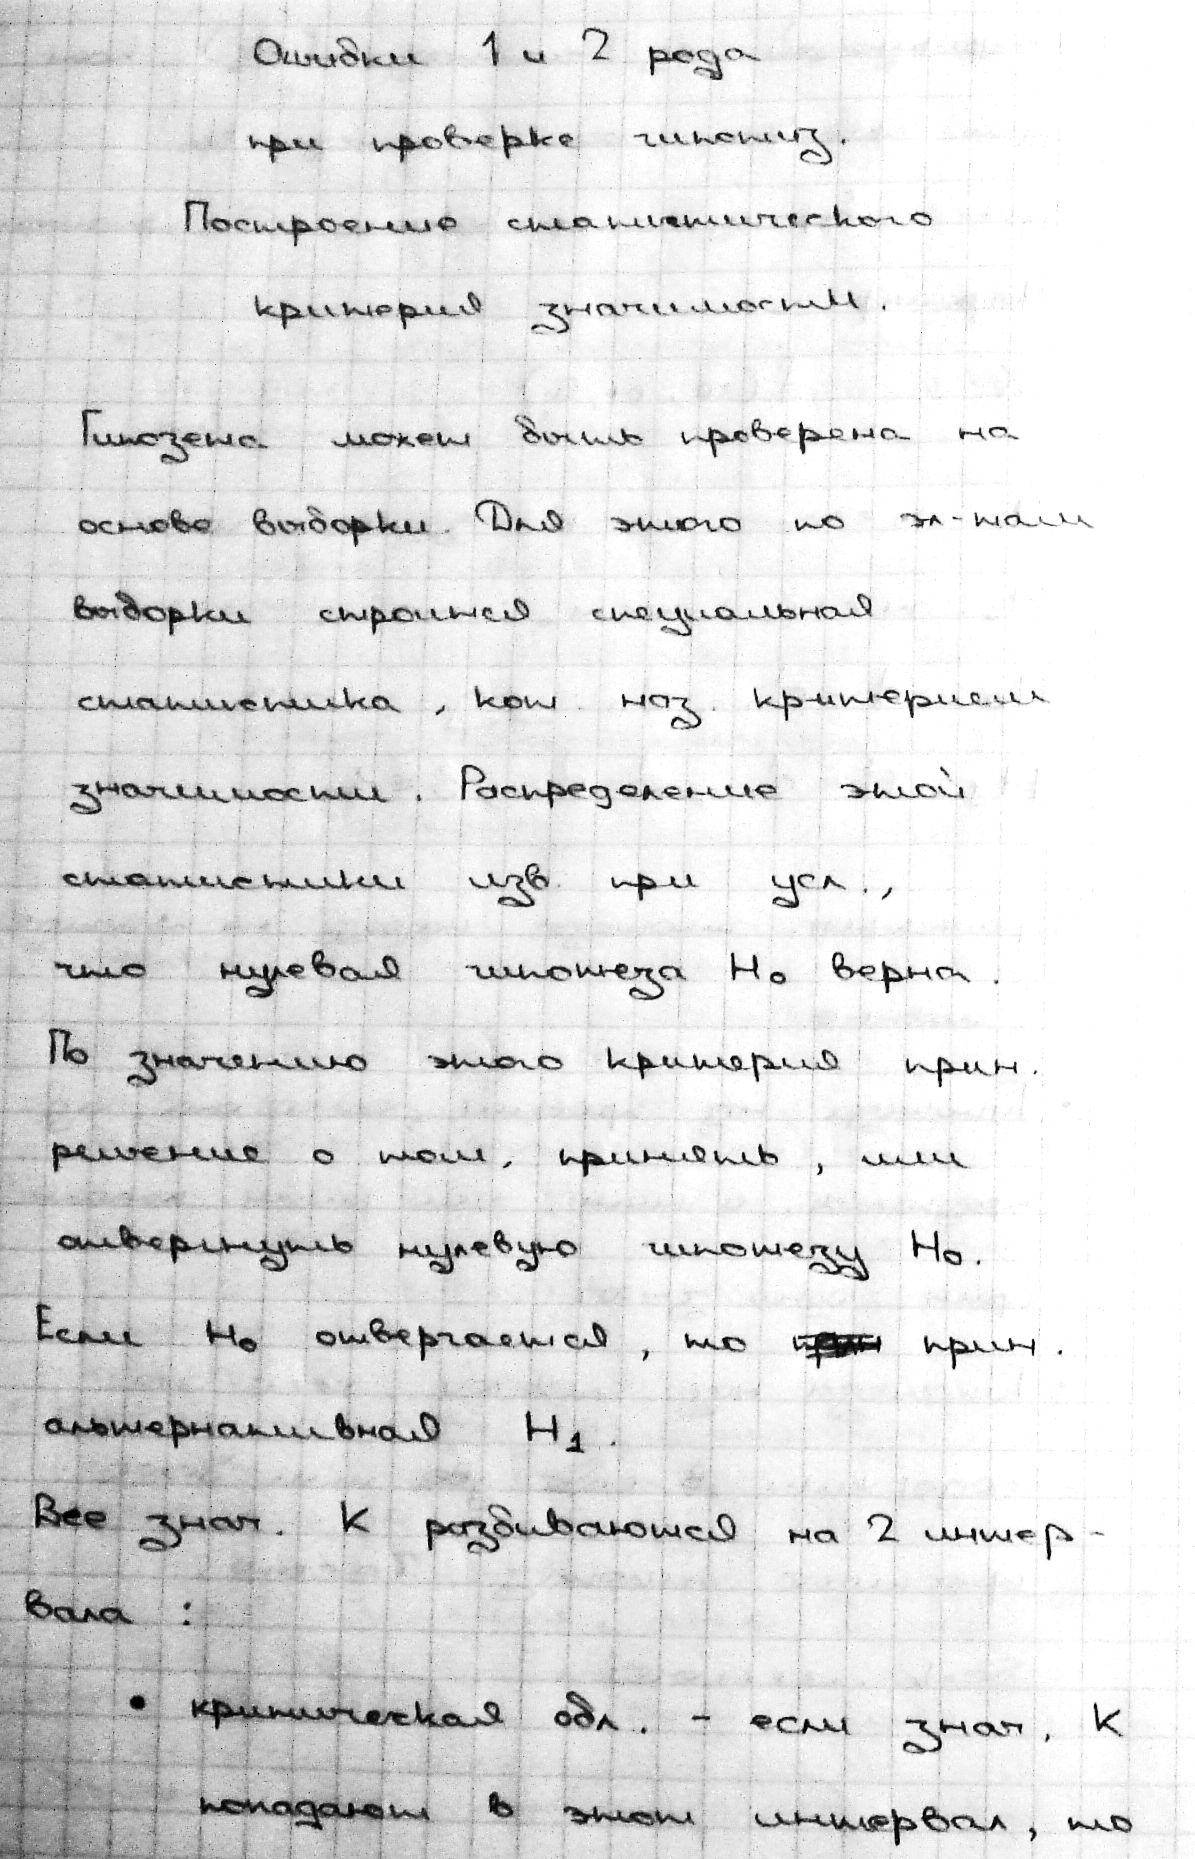 Ошибки 1 и 2 рода
при проверке гипотиз.
Построение статистического
критерия значимости.
Гипозета может быть проверена на
основе выборки. Для этого по эл-там
выборки строится специальная
статистика, кот. наз. критерием
значимости. Распределение этой
статистики изв. при усл.,
что нулевая гипотеза H₀ верна.
По значению этого критерия прин.
решение о том, принять, или
отвергнуть нулевую гипотезу H₀.
Если H₀ отвергается, то прин.
альтернативная H₁.
Все знач. K разбиваются на 2 интер-
вала :
• критическая обл. - если знач. K
попадают в этот интервал, то